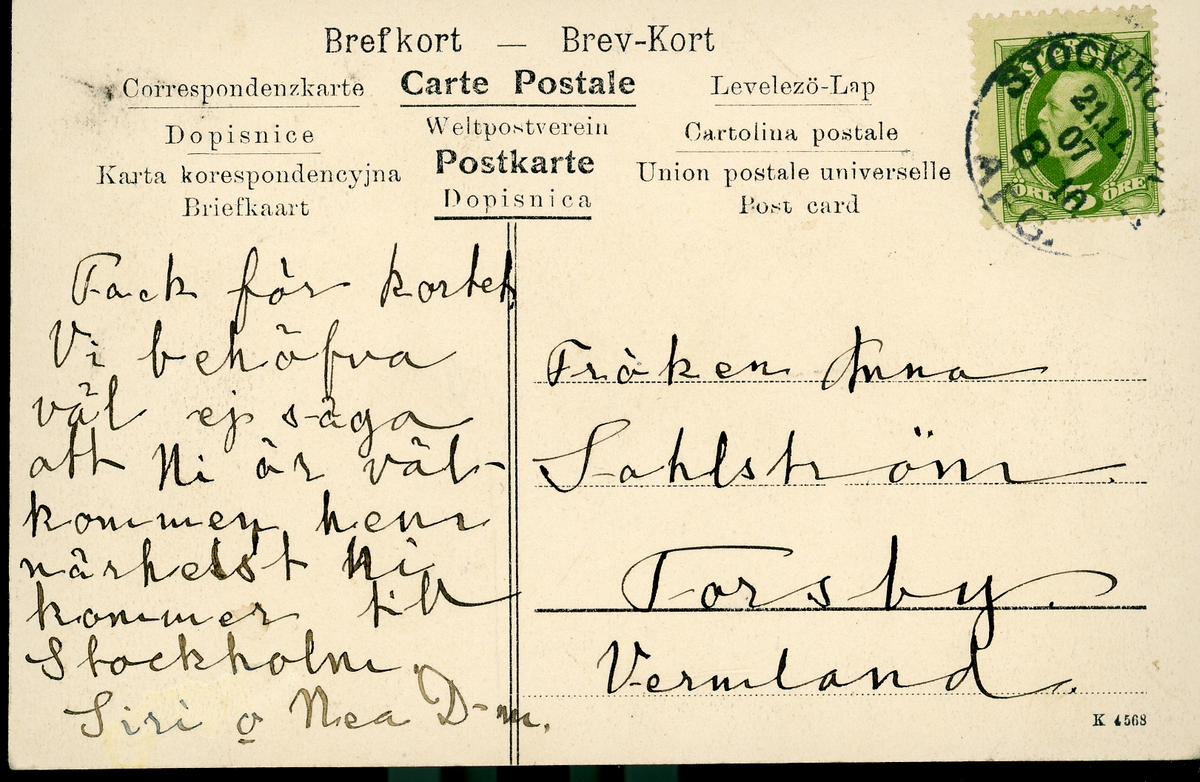 Brefkort — Brev-Kort
Correspondenzkarte Carte Postale Levelezö-Lap
Dopisnice Weltpostverein Cartolina postale
Karta korespondencyjna Postkarte Union postale universelle
Briefkaart Dopisnica Post card
SVERIGE
ÖRE 5 ÖRE
STOCKHOLM
21.11.
07
B 10
AFG.
Tack för kortet
Vi behöfva
väl ej säga
att Ni är väl-
kommen hem
närhelst Ni
kommer till
Stockholm.
Siri o Nea D-m.
Fröken Anna
Sahlström.
Torsby.
Vermland.
K 4568